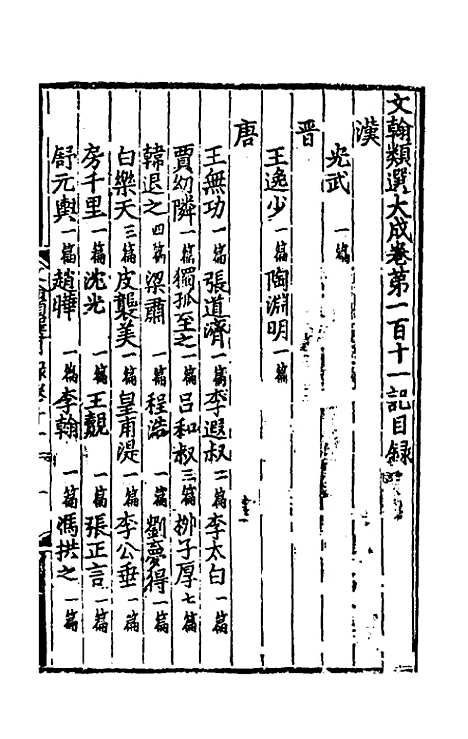 文翰類選大成卷第一百十一記目録
漢
光武一篇
晋
王逸少一篇陶淵明一篇
唐
王無功一篇張道濟一篇李遐叔二篇李太白一篇
賈幼隣一篇獨孤至之一篇吕和叔三篇栁子厚七篇
韓退之四篇梁肅一篇程浩一篇劉夢得一篇
白樂天三篇皮襲美一篇皇甫湜一篇李公垂一篇
房千里一篇沈光一篇王覿一篇張正言一篇
舒元輿一篇趙曄一篇李翰一篇馮拱之一篇